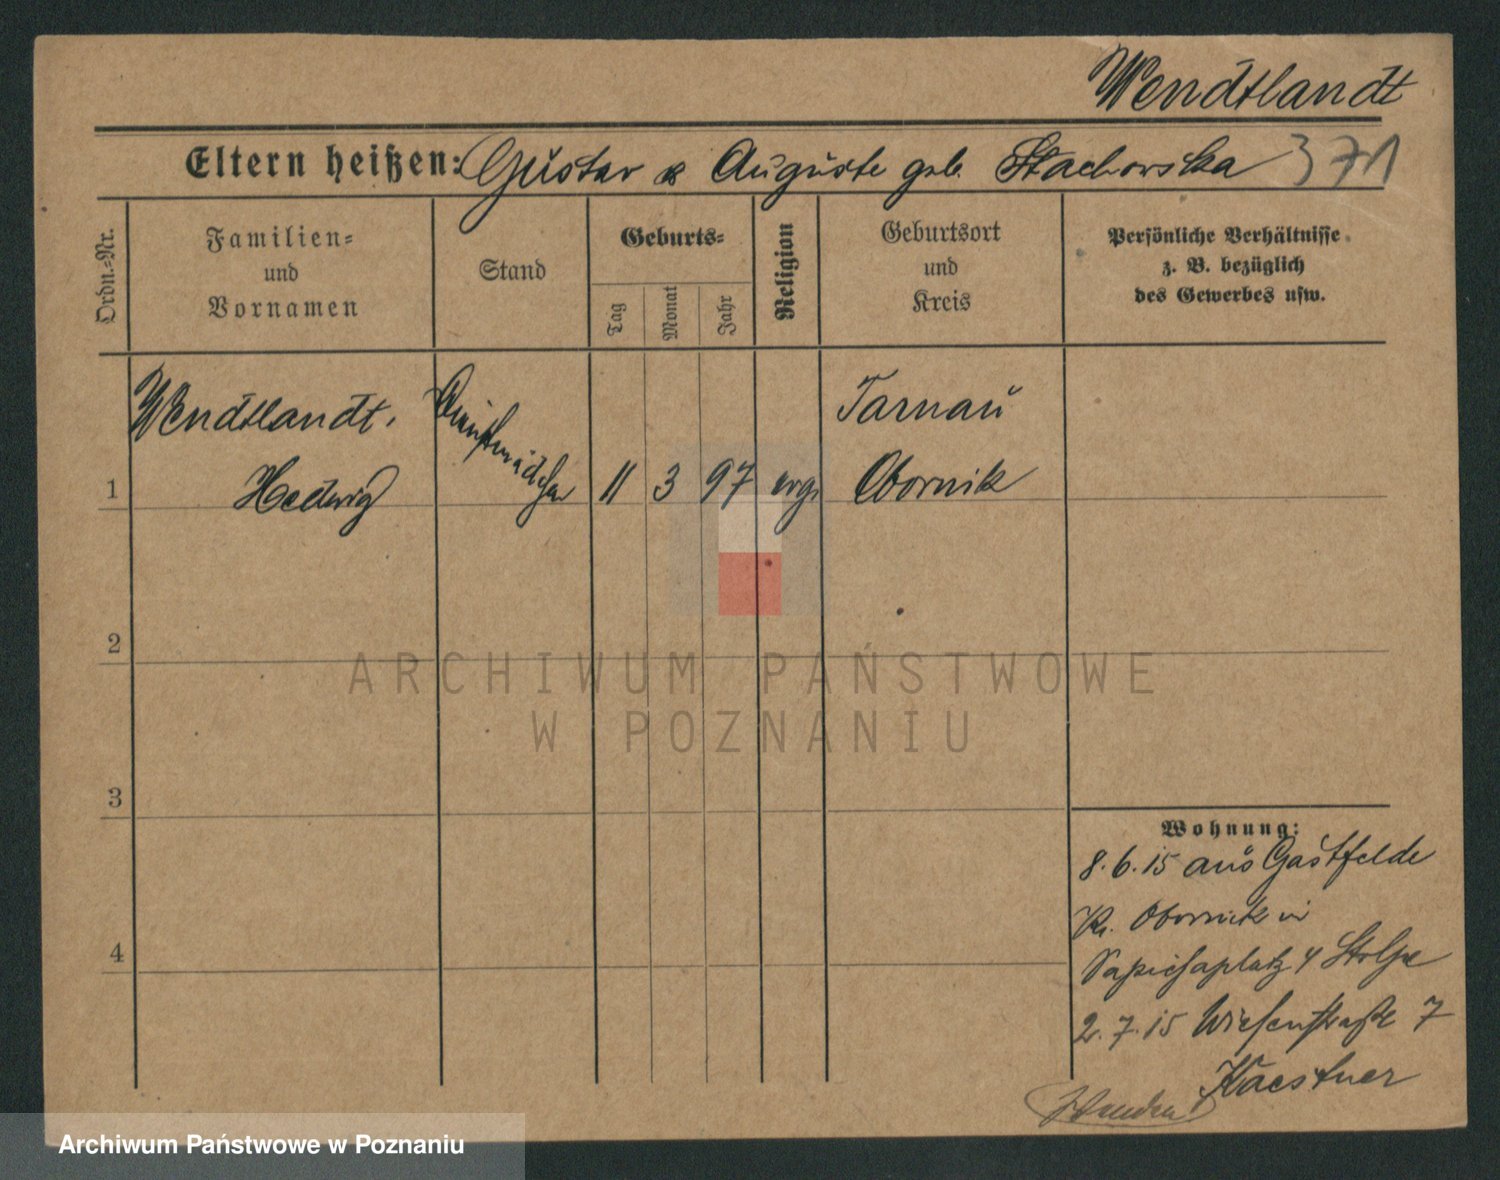 Wendtlandt
Eltern heißen: Gustav & Auguste geb. Stachowska 371
Ordn.-Nr.
Familien-
und
Vornamen
Stand
Geburts-
Tag
Monat
Jahr
Religion
Geburtsort
und
Kreis
Persönliche Verhältnisse
z. B. bezüglich
des Gewerbes usw.
Wendtlandt, Dienstmädchen Tarnau
1 Hedwig 11 3 97 evg. Obornik
2
ARCHIWUM PAŃSTWOWE
W POZNANIU
3
Wohnung:
8.6.15 aus Gastfelde
Kr. Obornik in
4 Sapiehaplatz 4 Stolpe
2.7.15 Wiesenstraße 7
Kaestner
Archiwum Państwowe w Poznaniu